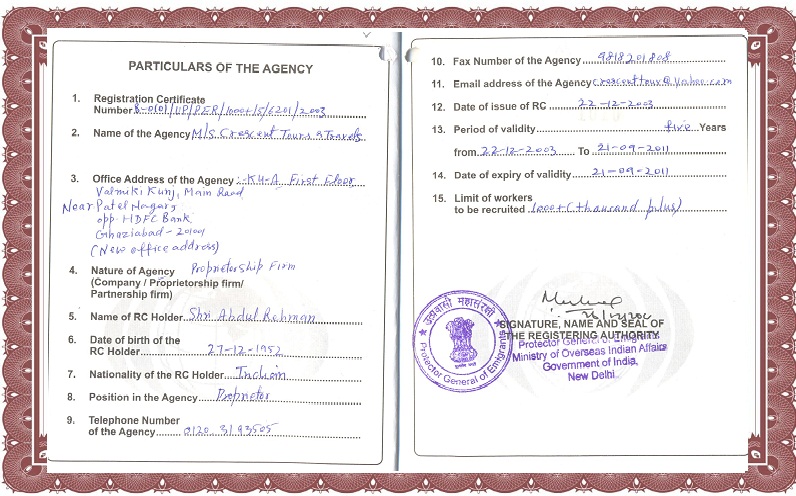 PARTICULARS OF THE AGENCY
1. Registration Certificate
Number B-0101/UP/PER/1000+/5/6201/2003
2. Name of the Agency M/S Crescent Tours & Travels
3. Office Address of the Agency :- KU-A, First Floor
Valmiki Kunj, Main Road
Near Patel Nagar
opp. HDFC Bank
Ghaziabad - 201001
(New office address)
4. Nature of Agency Proprietorship Firm
(Company / Proprietorship firm/
Partnership firm)
5. Name of RC Holder Shri Abdul Rehman
6. Date of birth of the
RC Holder 27-12-1952
7. Nationality of the RC Holder Indian
8. Position in the Agency Proprietor
9. Telephone Number
of the Agency 0120 3193505
10. Fax Number of the Agency 9818201808
11. Email address of the Agency crescenttour@yahoo.com
12. Date of issue of RC 22-12-2003
13. Period of validity five Years
from 22-12-2003 To 21-09-2011
14. Date of expiry of validity 21-09-2011
15. Limit of workers
to be recruited 1000+ (thousand plus)
SIGNATURE, NAME AND SEAL OF
THE REGISTERING AUTHORITY
Protector General of Emigrants
Ministry of Overseas Indian Affairs
Government of India,
New Delhi
उत्प्रवासी महासंरक्षी
Protector General of Emigrants